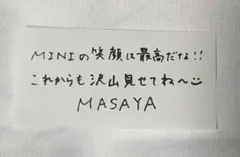 MINIの笑顔は最高だな!!
これからも沢山見せてね〜
MASAYA